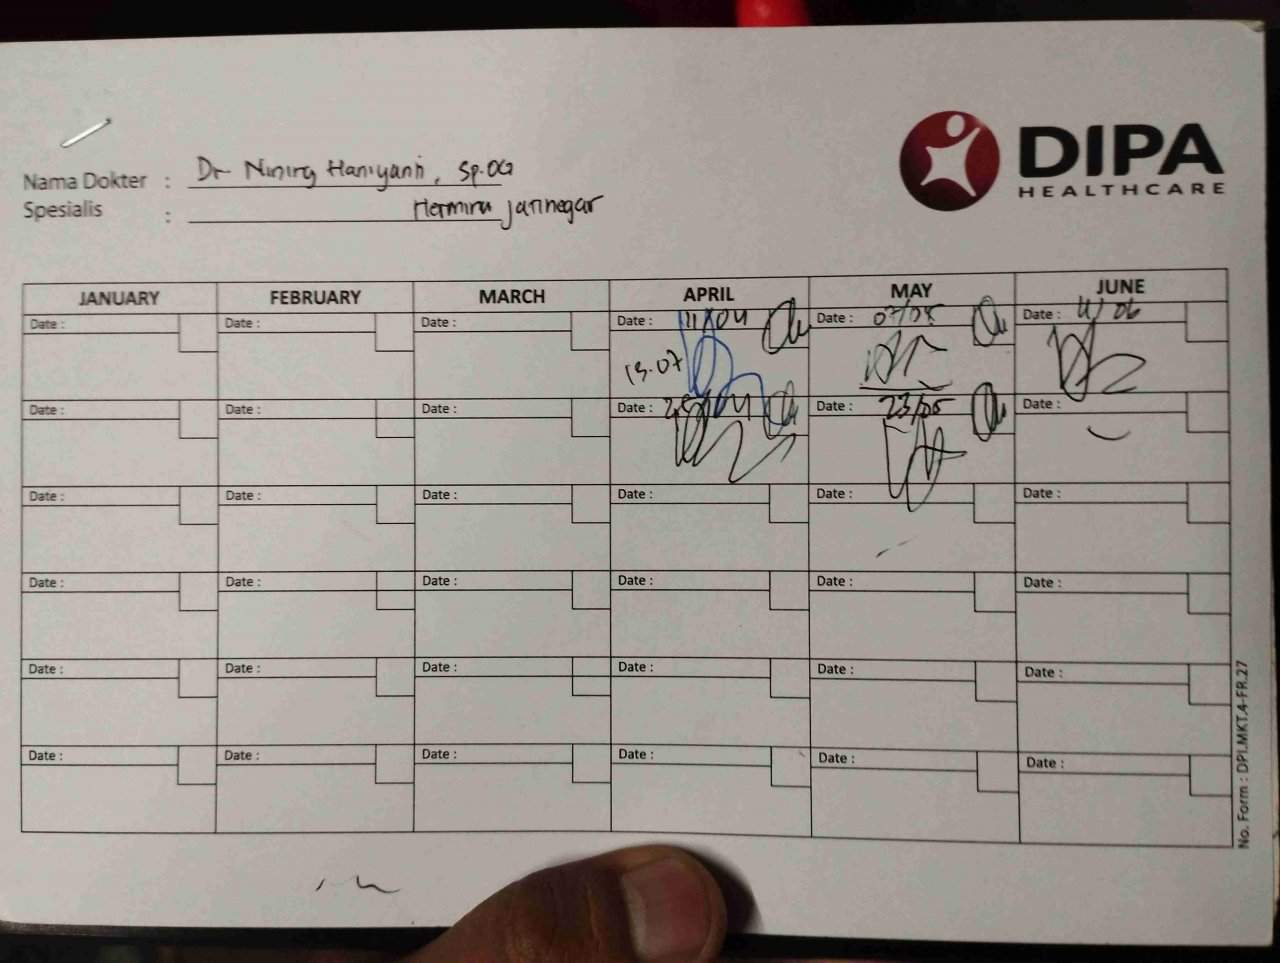 DIPA
HEALTHCARE
Nama Dokter : Dr Haniyanti, Sp.OG
Spesialis : Hermina Jatinegar
JANUARY FEBRUARY MARCH APRIL MAY JUNE
Date : Date : Date : Date : 11/04 Date : 07/05 Date : 11/06
13.07
Date : Date : Date : Date : Date : 23/05 Date :
Date : Date : Date : Date : Date : Date :
Date : Date : Date : Date : Date : Date :
Date : Date : Date : Date : Date : Date :
Date : Date : Date : Date : Date : Date :
No. Form : DPI.MKT.4-FR.27